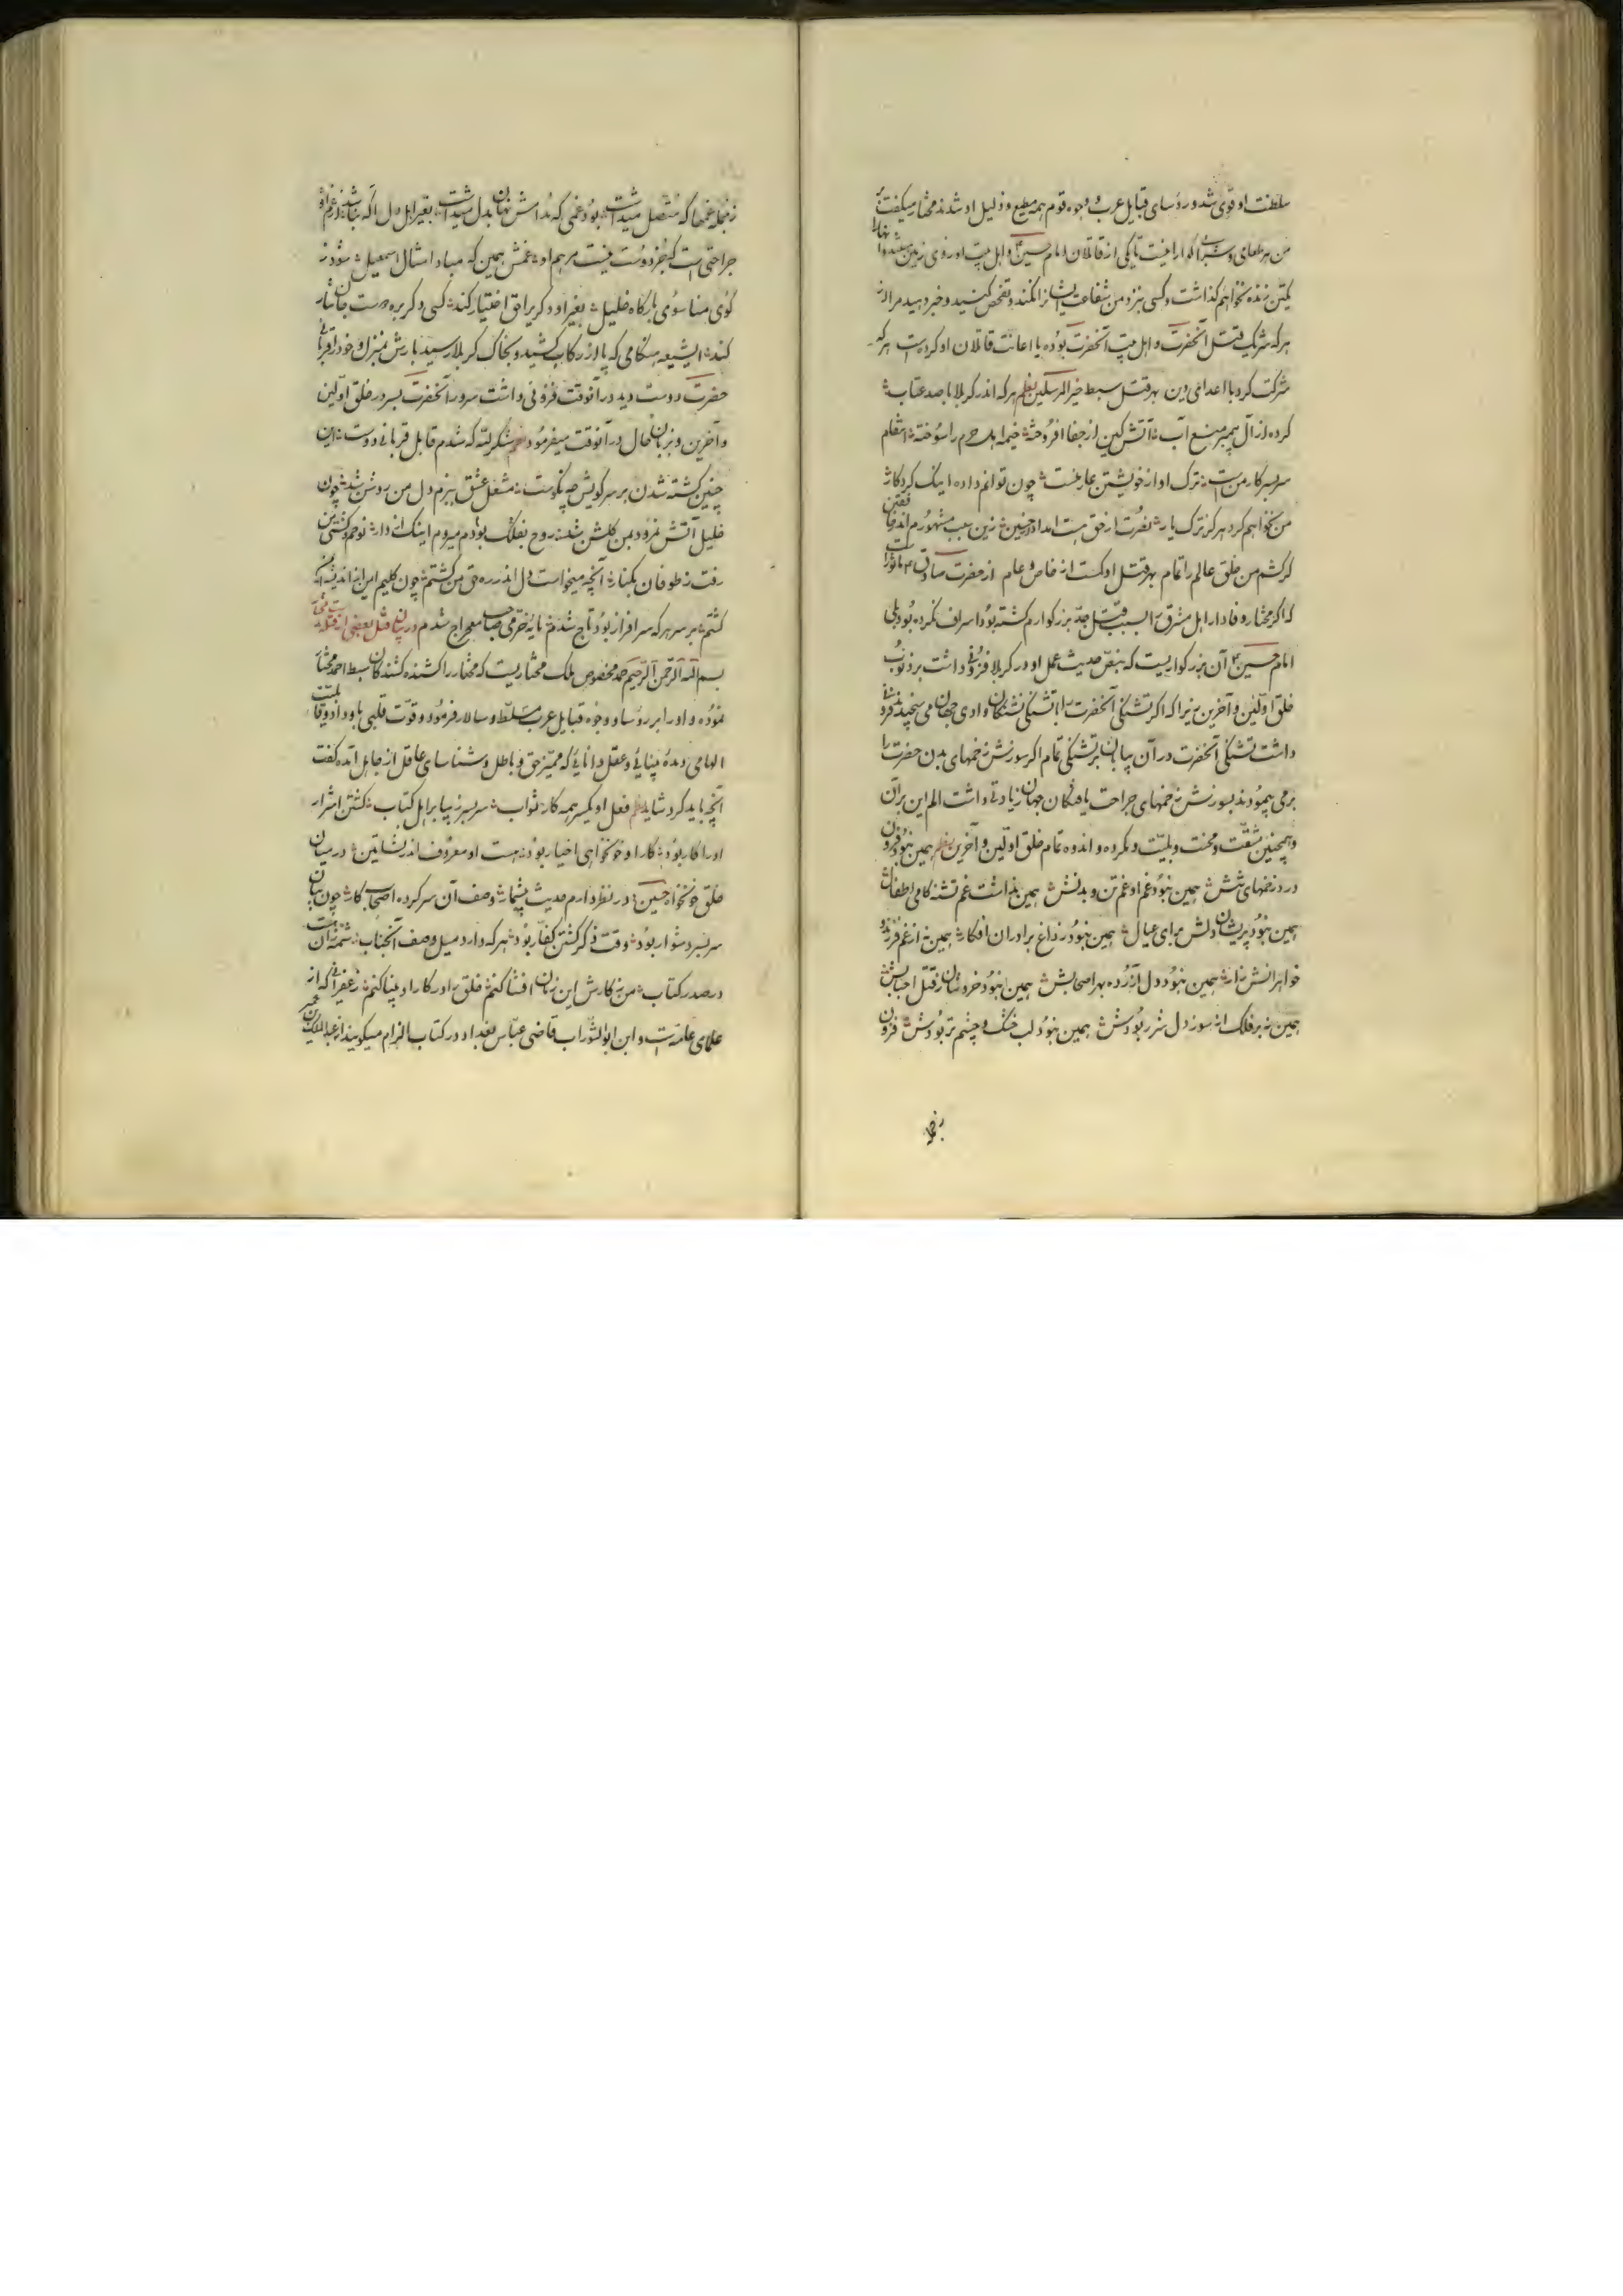 سلطنت او قوی شد و رؤسای قبایل عرب و وجوه قوم همه مطیع و ذلیل او شدند مختار میگفت
من بر طعام و شراب گوارا نیست تا یکی از قاتلان امام حسین و اهل بیت او روی زمین
یکتن زنده نخواهم گذاشت و کسی نزد من شفاعت ایشانرا نکند و تفحص کنید و خبر دهید مرا از
هر که شریک قتل آنحضرت و اهل بیت آنحضرت بوده یا اعانت قاتلان او کرده است هر که
شرکت کرد با اعدای دین بهر قتل سبط خیر المرسلین نظم هر که اندر کربلا با صد عتاب
کرده از آل پیمبر منع آب آتش کین از جفا افروخته خیمه اهل حرم را سوخته انتقام
سربسر کار من است ترک او از خویشتن عار منست چون توانم داد اینک کردگار
من نخواهم کرد هرگز ترک یار نصرت از حق هست امداد حسین زین سبب مشهورم اندر
گر کشم من خلق عالم را تمام بهر قتل او کمست از خاص و عام از حضرت صادق
که اگر مختار وفادار اهل مشرق را بسبب قتل جد بزرگوارم کشته بود اسراف نکرده بود بلی
امام حسین آن بزرگواریست که بنص حدیث عمل او در کربلا فزونی داشت بر ذنوب
خلق اولین و آخرین زیرا که اگر تشنگی آنحضرت را با تشنگی تشنگان وادی جهان می سنجیدند
داشت تشنگی آنحضرت در آن بیابان بر تشنگی تمام اگر سوزش زخمهای بدن حضرت را
بر می پیمودند بسوزش زخمهای جراحت یافتگان جهان زیادتی داشت الم این بر آن
و همچنین مشقت و محنت و بلیت و مکروه و اندوه تمام خلق اولین و آخرین نظم همین نبود فزون
درد زخمهای تنش همین نبود غم او غم تن و بدنش همین نداشت غم تشنه کامی اطفال
همین نبود پریشان دلش برای عیال همین نبود ز داغ برادران افکار همین نه از غم فرزند و
خواهرانش زار همین نبود دل آزرده بهر اصحابش همین نبود خروشان ز قتل احبابش
همین نه بر فلک از سوز دل شرر بودش همین نبود لب خشک و چشم تر بودش فزون
ز جمله غمها که متصل میداشت بود غمی که مدامش نهان بدل میداشت بغیر اهل دل آگه نباشد از غم او
جراحتی است که بجز دوست نیست مرهم او غمش همین که مباد امثال اسمعیل شود ز
کوی منا سوی بارگاه خلیل بغیر او دگری را حق اختیار کند کسی دگر بره دوست جان نثار
کند ای شیعه هنگامی که پا از رکاب کشید و بخاک کربلا رسید بارش بمنزل و خود را قربانی
حضرت دوست دید در آنوقت فزونی داشت سرور آنحضرت بسرور خلق اولین
و آخرین و بزبان حال در آنوقت میفرمود نظم شکر لله که شدم قابل قربانی دوست این
چنین کشته شدن بر سر کویش چه نکوست مشعل عشق ببزم دل من روشن شد چون
خلیل آتش نمرود بمن گلشن شد روح بفلک بودم میروم اینک
رفت ز طوفان بکنار آنچه میخواست دل اندر ره حق من گشتم چون کلیم
گشتم بر سر هر که سرافراز بود تاج شدم معراج شدم در بیان قتل بعضی از
بسم الله الرحمن الرحیم حمد مخصوص ملک مختاریست که مختار را کشنده کشندگان سبط احمد مختار
نموده و او را بر رؤسا و وجوه قبایل عرب مسلط و سالار فرمود و قوت قلبی باو داد و
الهامی دیده بینائی و عقل دانائی که ممیز حق و باطل و شناسای عاقل از جاهل آمده گفت
آنچه باید کرد شاید نظم فعل او یکسر همه کار ثواب سربسر زیبا بر اهل کتاب کشتن اشرار
او را کار بود کار او خونخواهی اخیار بود هست او معروف اندر نشأتین در میان
خلق خونخواه حسین در نظر دارم حدیث بیشمار وصف آن سرکرده اصحاب کار چون بیان
سربسر دشوار بود وقت ذکر کشتن کفار بود هر که دارد میل وصف آنجناب شمه‌ای زان هست
در صدر کتاب من نگارش این زمان افشا کنم خلق را در کار او بینا کنم زعفرانی که از
علمای عامه است و ابن ابو التراب قاضی عباس بغداد در کتاب الزام میگویند از عبدالملک بن عمیر